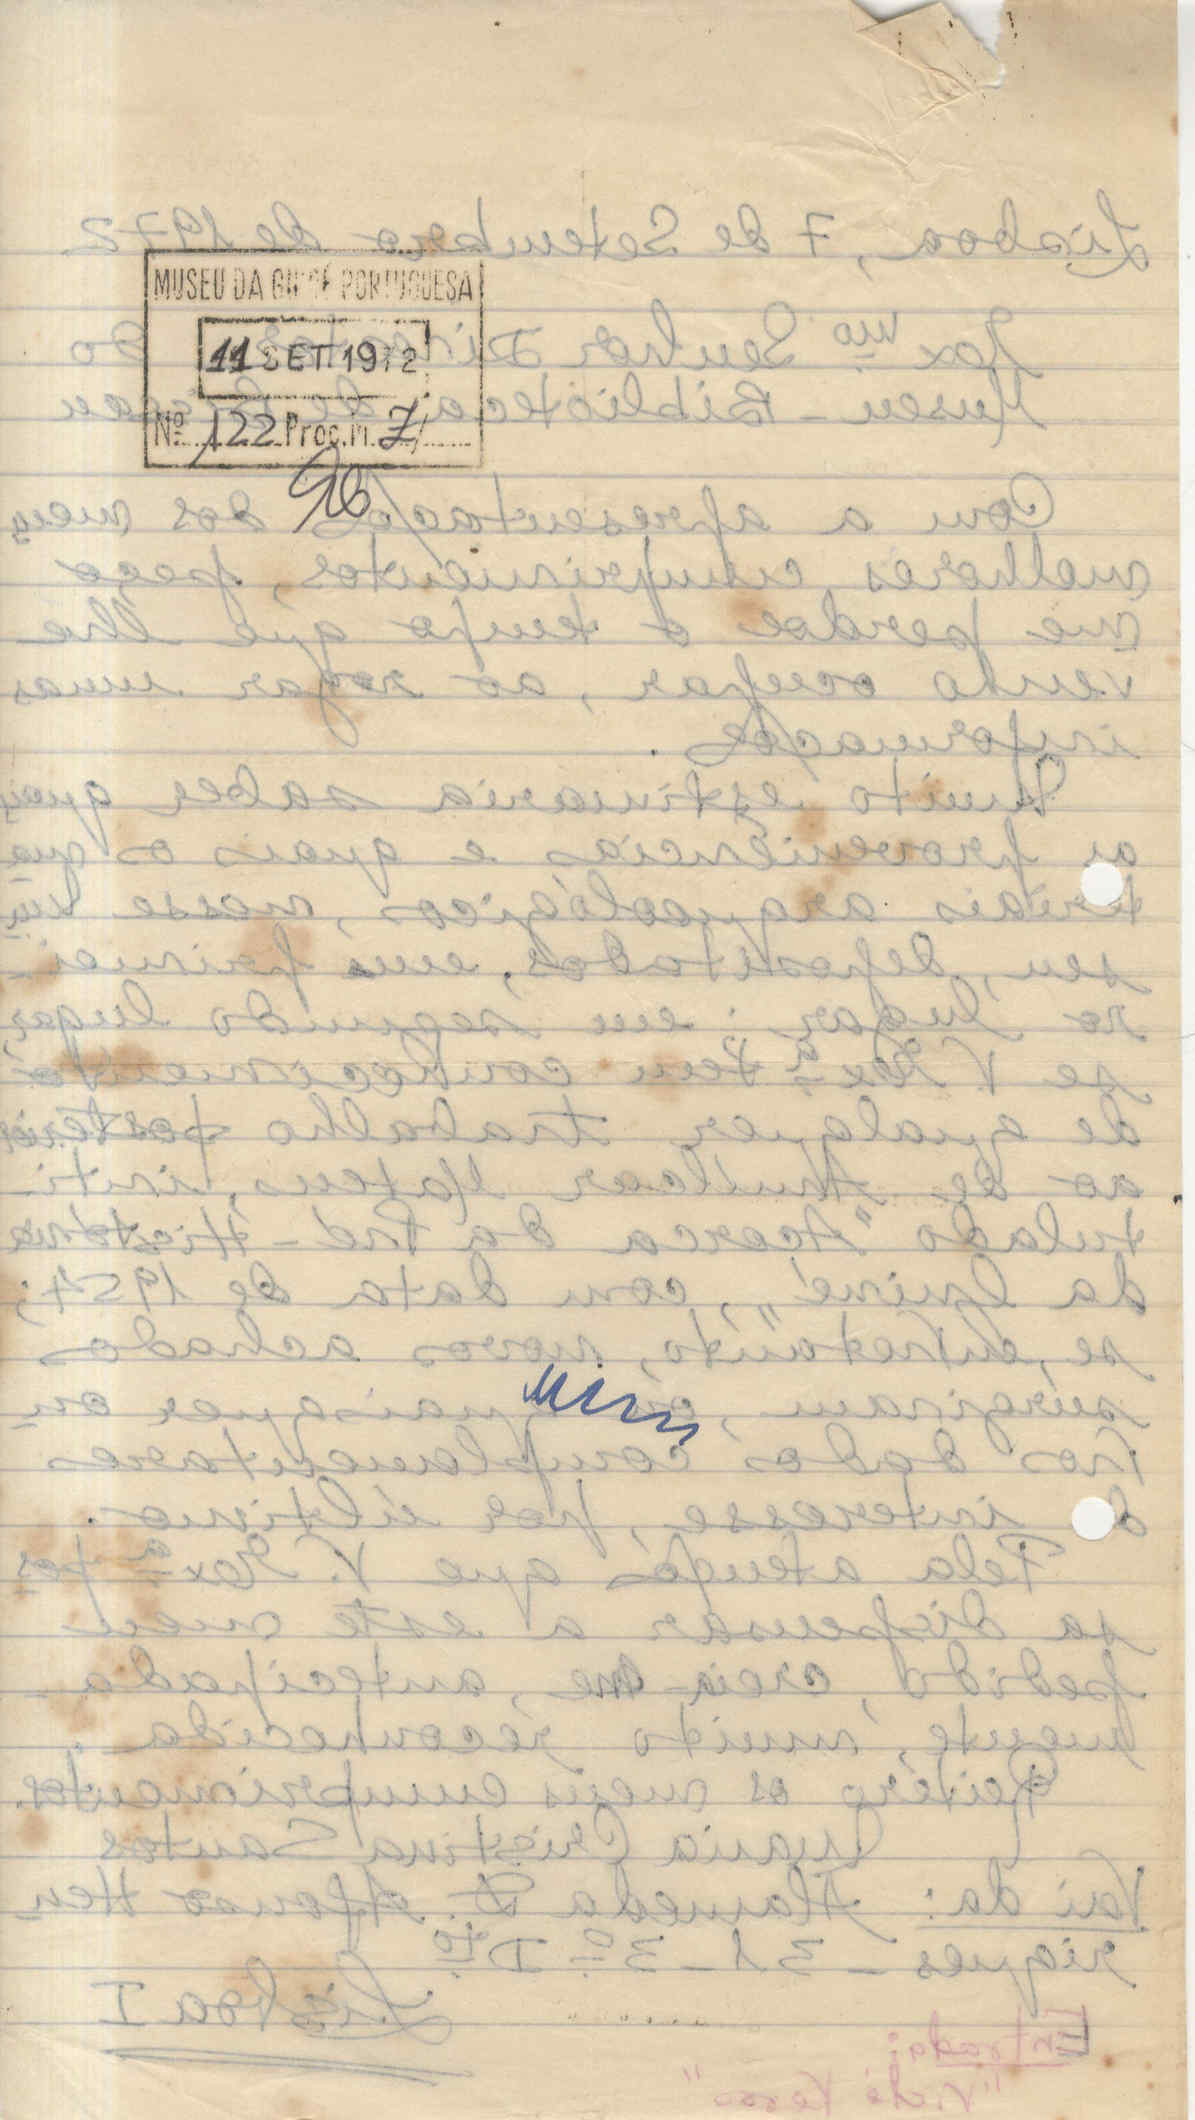 Lisboa, 7 de Setembro de 1972
MUSEU DA GUINÉ PORTUGUESA
11 SET. 1972
Nº 122 Proc. M. 7/
Exmo Senhor Director do
Museu-Biblioteca de Bissau
Com a apresentação dos meus
melhores cumprimentos, peço
me perdoe o tempo que lhe
venho ocupar, ao rogar umas
informações.
Muito estimaria saber quais
as proveniências e quais os ma-
teriais arqueológicos, nesse Mu-
seu, depositados, em primei-
ro lugar; em segundo lugar,
se V. Exª tem conhecimento
de qualquer trabalho posterior
ao de Amílcar Mateus, inti-
tulado "Acerca da Pré-História
da Guiné", com data de 1954;
se, entretanto, novos achados
surgiram, e quaisquer ou-
tros dados complementares
d interesse, por último.
Pela atenção que V. Exª pos-
sa dispensar a este meu
pedido, creia-me, antecipada-
mente, muito reconhecida.
Reitero os meus cumprimentos.
Maria Cristina Santos
Vai da: Alameda D. Afonso Hen-
riques - 31 - 3º Dto
Lisboa I
Entrada:
"Vidé Verso"